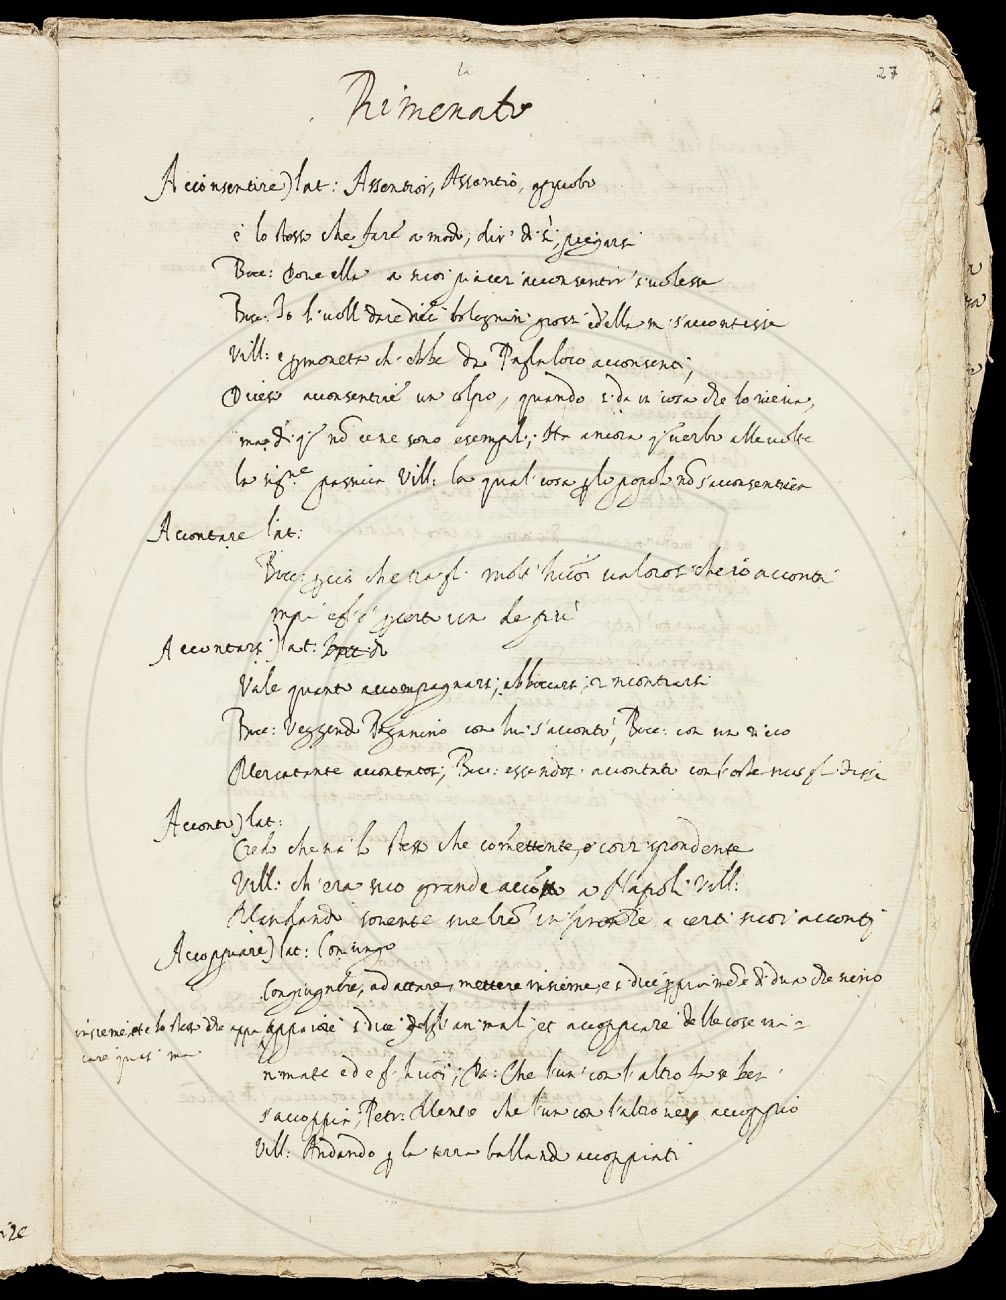 27
la
Rimenato
Acconsentire) lat: Assentior, Assentio, approbo
è lo stesso che fare a modo, dir di sì, piegarsi
Bocc: Dove ella a suoi piacer acconsentir volesse
Bocc: Io li voll dare dieci bolognini grossi ed ella m s'accontisse
Vill: e p moneta ch' ebbe da Pastaloro acconsenti;
Dicesi acconsentire un colpo, quando si da in cosa che lo riceva,
ma di qto nō ce ne sono esempli; Ha ancora qto verbo alle volte
la signe passiva Vill: la qual cosa p lo popolo nō s'acconsentiva
Accontare lat:
Bocc: p cio che sia fl molti huōi valorosi che io accontai
mai essi è p certo un de piu
Accontarsi) lat:
Vale quanto accompagnarsi, abboccarsi, rincontrarsi
Bocc: Veggendo Paganino con lui s'accontò, Bocc: con un ricco
Mercatante accontatosi, Bocc: essendosi accontato con l'oste suo fl disse
Acconto) lat:
Credo che sia lo stesso che comettente, o corrispondente
Vill: ch' era suo grande accōto a Napoli Vill:
Mandando sovente sue lrē in a certi suoi acconti
Accoppiare) lat: Coniungo
Congiugnere, adattare, mettere insieme, e si dice ppriamēte di due che sieno
insieme, et è lo stesso che appa appaiare si dice degl' animali, et accoppiare delle cose ina-
iare quasi ma
nimate ed e fl huōi; Da: Che l'un con l'altro fa se ben
s'accoppia, Petr: Mentre che l'un con l'altro vero accoppio
Vill: Andando p la terra ballando accoppiati